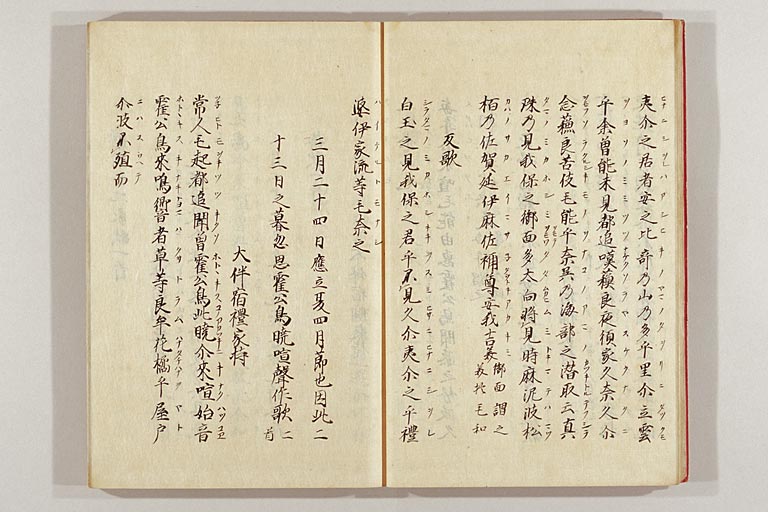 夷尒之居者安之比奇乃山乃多乎里尒立雲
乎余曽能未見都追嘆蘓良夜須家久奈久尒
念蘓良苦伎毛能乎奈呉乃海部之潜取云真
珠乃見我保之御面多太向将見時麻泥波松
栢乃佐賀延伊麻佐祢尊安我吉美 御面謂之美於毛和
反歌
白玉之見我保之君乎不見久尒夷尒之乎禮
婆伊家流等毛奈之
三月二十四日應立夏四月節也因此二
十三日之暮忽思霍公鳥暁喧聲作歌二首
大伴宿禰家持
常人毛起都追聞曽霍公鳥此暁尒来喧始音
霍公鳥来鳴響者草等良牟花橘乎屋戸
尒波不殖而